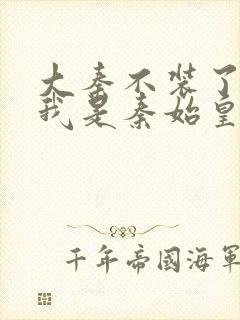 大秦不装了
我是秦始皇
千年帝國海軍